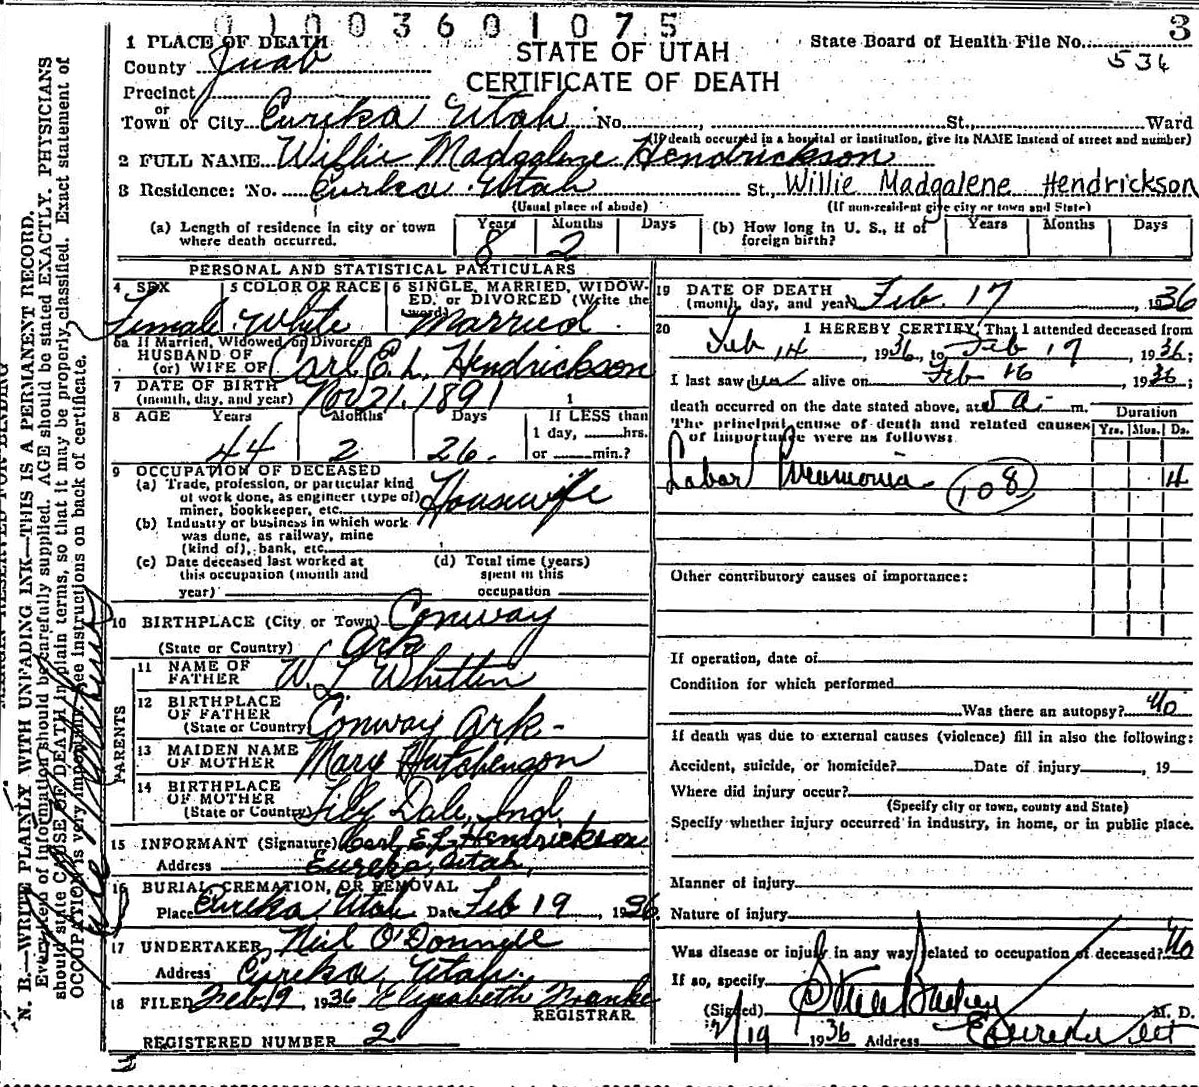 0 1 0 0 3 6 0 1 0 7 5
3
1 PLACE OF DEATH
STATE OF UTAH
CERTIFICATE OF DEATH
State Board of Health File No.
536
County Juab
Precinct
or
Town or City Eureka Utah No. , St., Ward
(If death occurred in a hospital or institution, give its NAME instead of street and number)
2 FULL NAME Willie Madgalene Hendrickson
3 Residence: No. Eureka Utah St. Willie Madgalene Hendrickson
(Usual place of abode) (If non-resident give city or town and State)
(a) Length of residence in city or town where death occurred. Years 8 Months 2 Days
(b) How long in U. S., if of foreign birth? Years Months Days
PERSONAL AND STATISTICAL PARTICULARS
4 SEX Female
5 COLOR OR RACE White
6 SINGLE, MARRIED, WIDOWED, or DIVORCED (Write the word) Married
6a If Married, Widowed or Divorced
HUSBAND OF
(or) WIFE OF Carl E. L. Hendrickson
7 DATE OF BIRTH
(month, day, and year) Nov 21, 1891
8 AGE Years Months Days If LESS than
1 day, hrs.
44 2 26. or min.?
9 OCCUPATION OF DECEASED
(a) Trade, profession, or particular kind
of work done, as engineer (type of)
miner, bookkeeper, etc. Housewife
(b) Industry or business in which work
was done, as railway, mine
(kind of), bank, etc.
(c) Date deceased last worked at
this occupation (month and
year)
(d) Total time (years)
spent in this
occupation
10 BIRTHPLACE (City or Town) Conway
(State or Country) Ark
PARENTS
11 NAME OF
FATHER W. L. Whitten
12 BIRTHPLACE
OF FATHER
(State or Country) Conway Ark-
13 MAIDEN NAME
OF MOTHER Mary Hutchenson
14 BIRTHPLACE
OF MOTHER
(State or Country) Lily Dale, Ind
15 INFORMANT (Signature) Carl E. L. Hendrickson
Address Eureka, Utah,
16 BURIAL, CREMATION, OR REMOVAL
Place Eureka, Utah Date Feb 19, 1936.
17 UNDERTAKER Neil O'Donnell
Address Eureka Utah.
18 FILED Feb 19 1936 Elizabeth Franke
REGISTRAR.
REGISTERED NUMBER 2
19 DATE OF DEATH
(month, day, and year) Feb. 17, 1936
20 I HEREBY CERTIFY, That I attended deceased from
Feb 14, 1936, to Feb 17, 1936;
I last saw her alive on Feb 16, 1936;
death occurred on the date stated above, at 5 a. m.
The principal cause of death and related causes
of importance were as follows:
Duration
Yrs. Mos. Ds.
Lobar Pneumonia 108 4
Other contributory causes of importance:
If operation, date of
Condition for which performed
Was there an autopsy? No
If death was due to external causes (violence) fill in also the following:
Accident, suicide, or homicide? Date of injury , 19
Where did injury occur?
(Specify city or town, county and State)
Specify whether injury occurred in industry, in home, or in public place.
Manner of injury
Nature of injury
Was disease or injury in any way related to occupation of deceased? No
If so, specify
(Signed) Bailey M. D.
2/19 1936 Address Eureka Ut
N. B.—WRITE PLAINLY WITH UNFADING INK—THIS IS A PERMANENT RECORD.
Every item of information should be carefully supplied. AGE should be stated EXACTLY. PHYSICIANS
should state CAUSE OF DEATH in plain terms, so that it may be properly classified. Exact statement of
OCCUPATION is very important. See instructions on back of certificate.